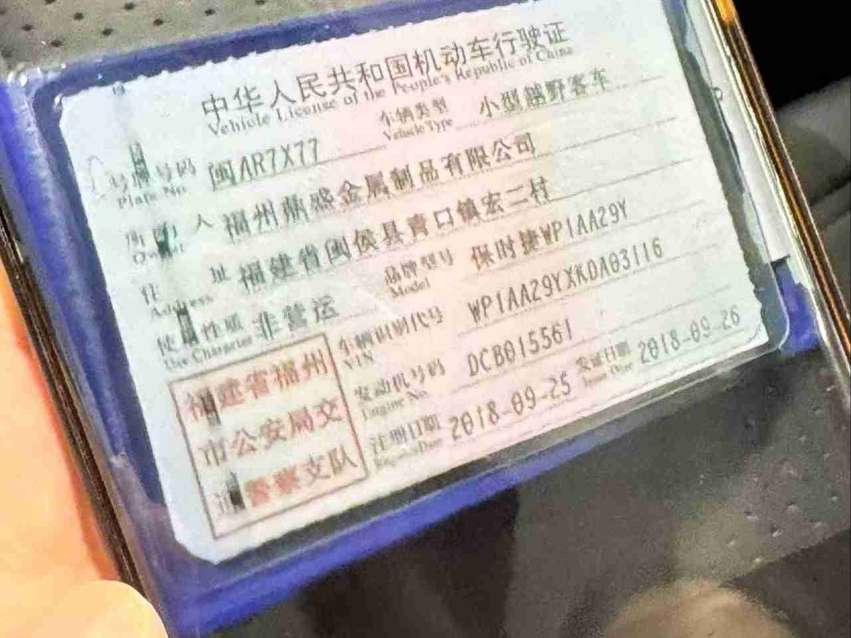 中华人民共和国机动车行驶证
Vehicle License of the People's Republic of China
号牌号码 闽AR7X77 车辆类型 小型越野客车
Plate No. Vehicle Type
所有人 福州鼎盛金属制品有限公司
Owner
住址 福建省闽侯县青口镇宏二村
Address
使用性质 非营运 品牌型号 保时捷WP1AA29Y
Use Character Model
车辆识别代号 WP1AA29YXKDA03116
VIN
发动机号码 DCB015561
Engine No.
注册日期 2018-09-25 发证日期 2018-09-26
Register Date Issue Date
福建省福州
市公安局交
通警察支队